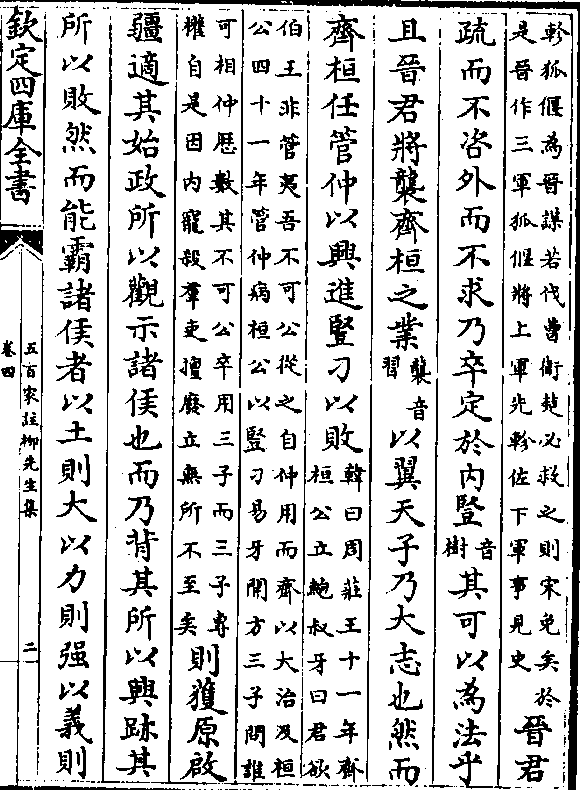 軫狐偃為晉謀若伐曹衛楚必救之則宋免矣於
是晉作三軍狐偃將上軍先軫佐下軍事見史
晉君
疏而不咨外而不求乃卒定於內豎
音
樹
其可以為法乎
且晉君將襲齊桓之業
襲音
習
以翼天子乃大志也然而
齊桓任管仲以興進豎刁以敗
韓曰周莊王十一年齊
桓公立鮑叔牙曰君欲
伯王非管夷吾不可公從之自仲用而齊以大治及桓
公四十一年管仲病桓公以豎刁易牙開方三子問誰
可相仲歷數其不可公卒用三子而三子專
權自是因內寵殺羣吏擅廢立無所不至矣
則獲原啟
疆適其始政所以觀示諸侯也而乃背其所以興跡其
所以敗然而能霸諸侯者以土則大以力則强以義則
欽定四庫全書
五百家註柳先生集
卷四
二